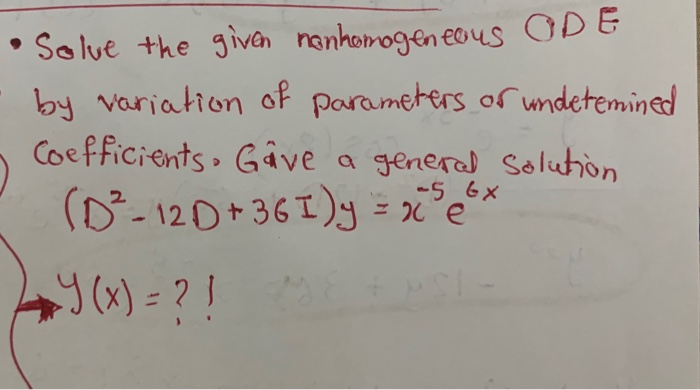 • Solve the given nonhomogeneous ODE
by variation of parameters or undetemined
Coefficients. Gave a general solution
(D² - 12D + 36 I)y = x⁻⁵ e⁶ˣ
→ y(x) = ? !